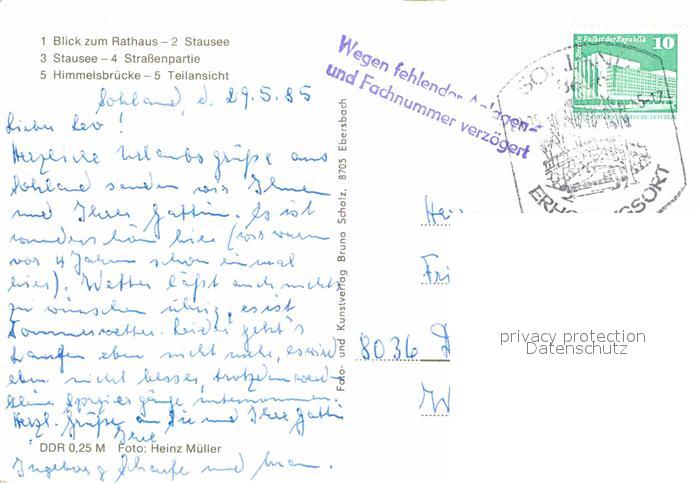 1 Blick zum Rathaus – 2 Stausee
3 Stausee – 4 Straßenpartie
5 Himmelsbrücke – 5 Teilansicht
Sohland, d. 29.5.85
Lieber Leo!
Herzliche Urlaubsgrüße aus
Sohland senden wir Ihnen
und Ihrer Gattin. Es ist
wunderschön hier (wir waren
vor 4 Jahren schon einmal
hier). Wetter läßt auch nichts
zu wünschen übrig, es ist
Sommerwetter. Leider geht's
Laufen eben nicht mehr, es wird
eben nicht besser, trotzdem werden
kleine Spaziergänge unternommen.
Herzl. Grüße an Sie und Ihre Gattin
Ihre
DDR 0,25 M Foto: Heinz Müller
Ingeborg und Mann.
Foto- und Kunstverlag Bruno Scholz, 8705 Ebersbach
Wegen fehlender Anlagen-
und Fachnummer verzögert
Palast der Republik 10
ERHOLUNGSORT
8036 D
W
privacy protection
Datenschutz